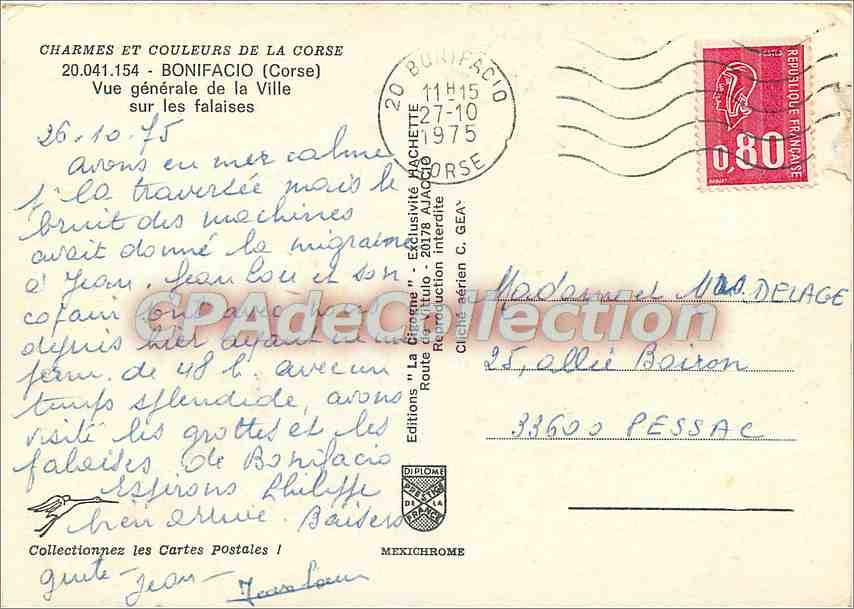 CHARMES ET COULEURS DE LA CORSE
20.041.154 - BONIFACIO (Corse)
Vue générale de la Ville
sur les falaises
26.10.75
avons eu mer calme
la traversée mais le
bruit des machines
avait donné la migraine
à Jean. Jean Lou et son
copain sont avec nous
depuis hier ayant eu une
perm. de 48 h. avec un
temps splendide, avons
visité les grottes et les
falaises de Bonifacio
Espérons Philippe
bien arrivé. Baisers
Collectionnez les Cartes Postales !
Jean
Jean Lou
Editions "La Cigogne" - Exclusivité HACHETTE
Route de Vittulo - 20178 AJACCIO
Reproduction interdite
Cliché aérien C. GEAY
DIPLOME
PRESTIGE
DE LA
FRANCE
MEXICHROME
20 BONIFACIO
11H15
27-10
1975
CORSE
REPUBLIQUE FRANÇAISE
POSTES
0,80
Madame et DELAGE
25, allée Boiron
33600 PESSAC
CPAdeCollection